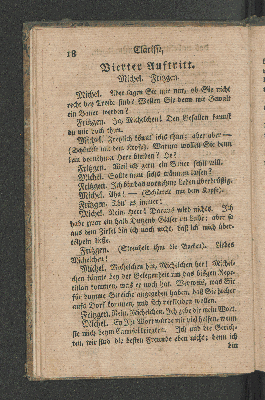 18
Clarisse,
Vierter Auftritt.
Michel. Fritzgen.
Michel. Aber sagen Sie mir nur, ob Sie nicht
recht bey Troste sind? Wollen Sie denn mit Gewalt
ein Bauer werden?
Fritzgen. Ja, Michelchen! Den Gefallen kannst
du mir doch thun.
Michel. Freylich könnt' ichs thun; aber aber —
(Schüttelt mit dem Kopfe). Warum wollen Sie denn
kein vornehmer Herr bleiben? He?
Fritzgen. Weil ich gern ein Bauer seyn will.
Michel. Sollte man sichs träumen lassen?
Fritzgen. Ich bin das vornehme Leben überdrüßig.
Michel. Aha! — (Schüttelt mit dem Kopfe).
Fritzgen. Thu' es immer!
Michel. Nein, Herr! Daraus wird nichts. Ich
habe zwar ein halb Dutzend Gäste im Leibe; aber so
aus dem Stiel bin ich noch nicht, daß ich mich über-
tölpeln ließe.
Fritzgen. (Streichelt ihm die Backen). Liebes
Michelchen!
Michel. Michelchen hin, Michelchen her! Michel-
chen könnte bey der Gelegenheit um das bisgen Repu-
tation kommen, was er noch hat. Wer weis, was Sie
für dumme Streiche angegeben haben, daß Sie hieher
aufs Dorf kommen, und sich verkleiden wollen.
Fritzgen. Nein, Michelchen. Ich gebe dir mein Wort.
Michel. Ey Ihr Wort würde mir viel helfen, wenn
sie mich beym
Ich und die Gerich-
ten, wir sind die besten Freunde eben nicht; denn ich
bin